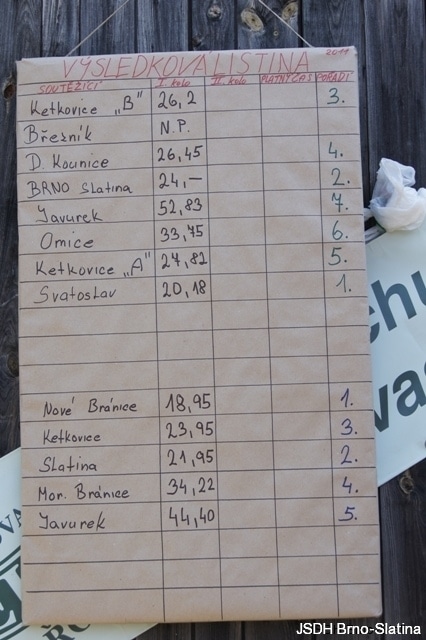 VÝSLEDKOVÁ LISTINA 2011
SOUTĚŽÍCÍ I. kolo II. kolo PLATNÝ ČAS POŘADÍ
Ketkovice „B" 26,2 3.
Březník N.P.
D. Kounice 26,45 4.
BRNO Slatina 24,— 2.
Javurek 52,83 7.
Omice 33,75 6.
Ketkovice „A" 27,82 5.
Svatoslav 20,18 1.
Nové Bránice 18,95 1.
Ketkovice 23,95 3.
Slatina 21,95 2.
Mor. Bránice 34,22 4.
Javurek 44,40 5.
JSDH Brno-Slatina